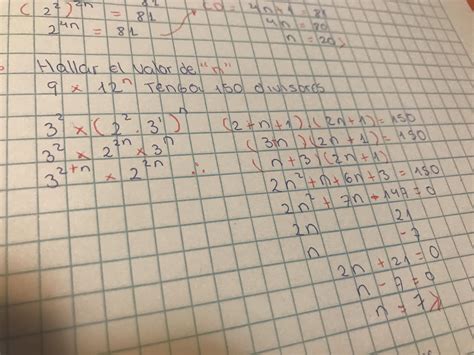 (2²)²ⁿ = 81
2⁴ⁿ = 81
4n+1 = 81
4n = 80
n = 20
Hallar el valor de "n"
9 × 12ⁿ Tenga 150 divisores
3² × (2² · 3¹)ⁿ
3² × 2²ⁿ × 3ⁿ
3²⁺ⁿ × 2²ⁿ ∴
(2+n+1) · (2n+1) = 150
(3+n) (2n+1) = 150
(n+3) (2n+1)
2n² + n + 6n + 3 = 150
2n² + 7n - 147 = 0
2n 21
n -7
2n + 21 = 0
n - 7 = 0
n = 7